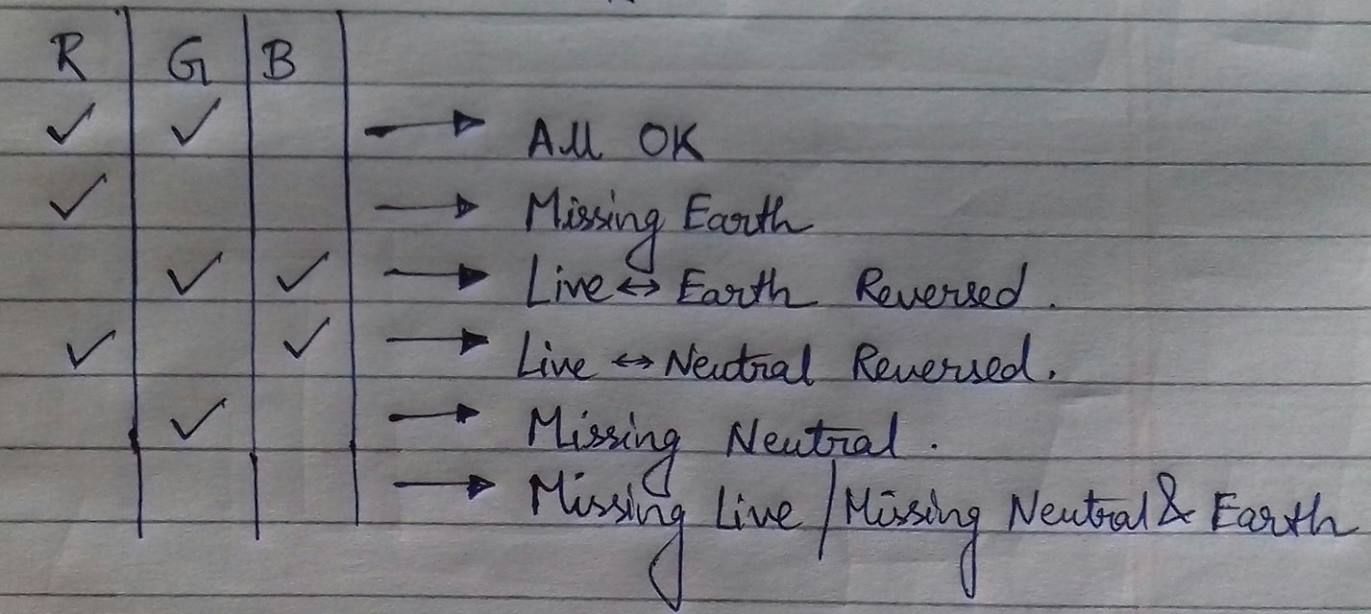 R G B
✓ ✓ → All OK
✓ → Missing Earth
✓ ✓ → Live ↔ Earth Reversed.
✓ ✓ → Live ↔ Neutral Reversed.
✓ → Missing Neutral.
→ Missing Live / Missing Neutral & Earth